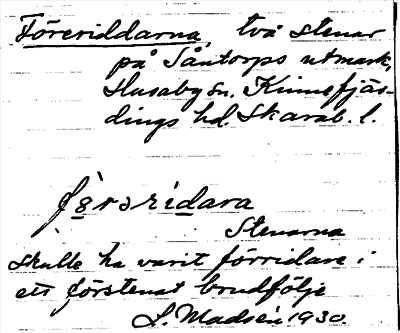 Föreriddarna, två stenar
på Såntorps utmark,
Husaby sn. Kinnefjäs-
dings hd. Skarab. l.
Stenarna
skulle ha varit förridare i
ett förstenat brudfölje
S. Madsén 1930.